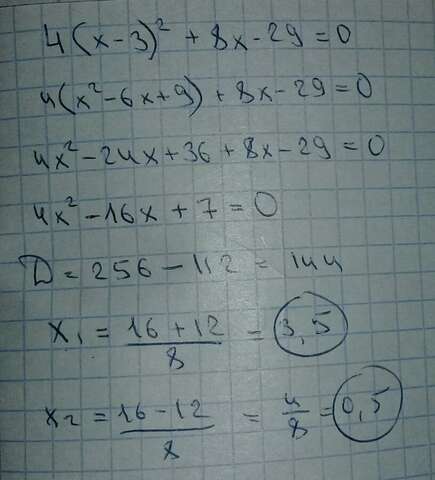 4(x-3)² + 8x-29=0
4(x²-6x+9) + 8x-29=0
4x²-24x+36+8x-29=0
4x²-16x+7=0
D=256-112=144
x₁ = (16+12)/8 = 3,5
x₂ = (16-12)/8 = 4/8 = 0,5